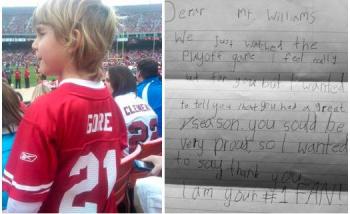 GORE
21
CLEMEN
Dear Mr. Williams
We Just watched the
Playoff game I feel really
bad for you but I wanted
to tell you that you had a great
season. you sould be
very proud so I wanted
to say thank you
I am your #1 FAN!